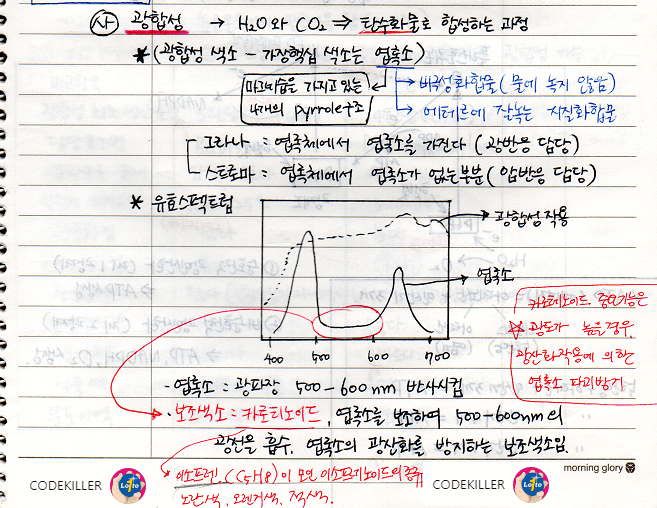 (사) 광합성 → H₂O와 CO₂ ⇒ 탄수화물로 합성하는 과정
* (광합성 색소 - 가장핵심 색소는 엽록소)
마그네슘을 가지고 있는
4개의 pyrrole구조
→ 비극성화합물 (물에 녹지 않음)
→ 에테르에 잘녹는 지질화합물
그라나 : 엽록체에서 엽록소를 가진다 (광반응 담당)
스트로마 : 엽록체에서 엽록소가 없는부분 (암반응 담당)
* 유효스펙트럼
광합성작용
엽록소
400 500 600 700
카로티노이드 중요기능은
* 광도가 높을경우,
광산화작용에 의한
엽록소 파괴방지
· 엽록소 : 광파장 500-600nm 반사시킴
· 보조색소 : 카로티노이드, 엽록소를 보조하여 500-600nm의
광선을 흡수, 엽록소의 광산화를 방지하는 보조색소임.
이소프렌 (C5H8)이 모인 이소프레노이드의 종류
노란색, 오렌지색, 적색.
morning glory
CODEKILLER Lotto CODEKILLER Lotto